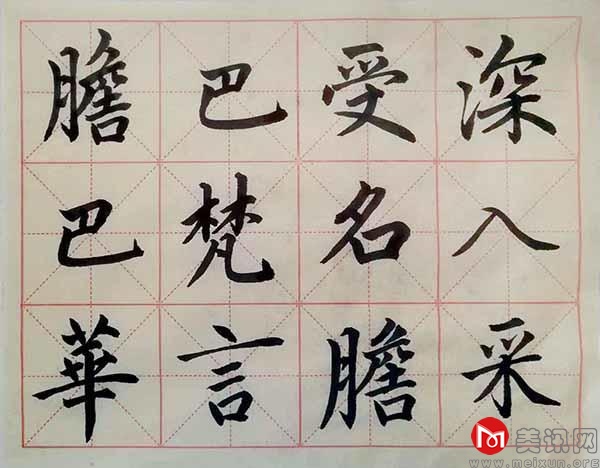 深入采
受名膽
巴梵言
膽巴華
美讯网
www.meixun.org